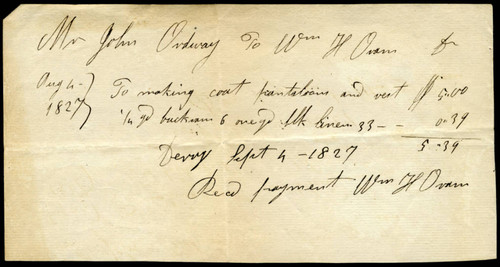 Mr John Ordway To Wm H Oram Dr
Aug 4 - 1827 } To making coat pantaloons and vest $ 5.00
1/4 yd buckram 6 one yd slk linen 33 - - 0.39
5.39
Derry Sept 4 - 1827
Recd payment Wm H Oram